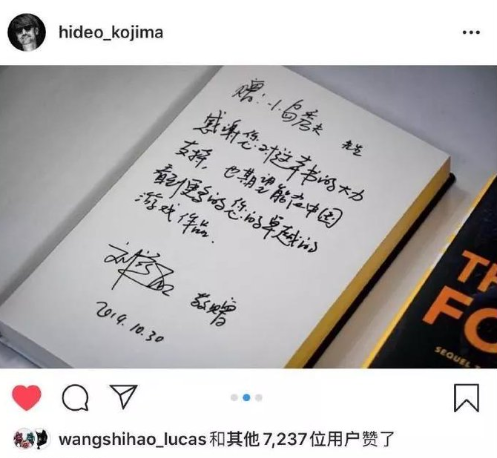 hideo_kojima
赠：小岛秀夫 先生
感谢您对这本书的大力
支持，也期望能在中国
看到更多的您的卓越的
游戏作品。
敬赠
2019.10.30
TH
FO
SEQUEL T
wangshihao_lucas和其他7,237位用户赞了